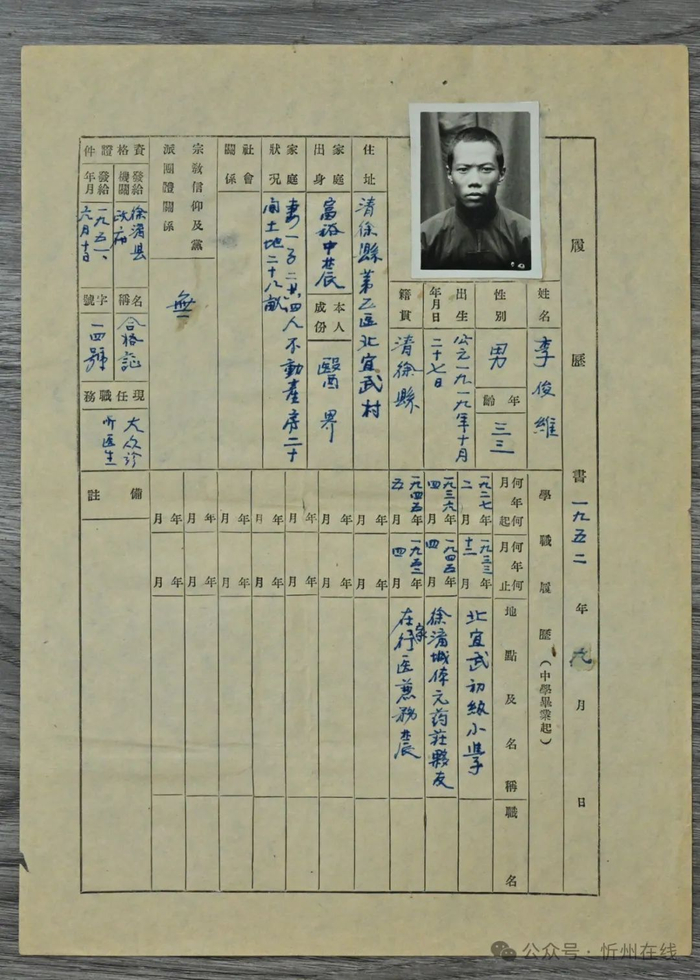 履歷書 一九五二年九月 日
姓名 李俊維
性別 男
年齡 三三
出生年月日 公元一九一九年十月二十七日
籍貫 清徐縣
住址 清徐縣第乙區北宜武村
家庭出身 富裕中農
本人成份 醫界
家庭狀況 妻一子二共四人不動產房二十間土地二十八畝
社會關係
宗教信仰及黨派團體關係 無
資格證件
發給機關 徐溝县政府
發給年月 一九五一、六月十日
名稱 合格証
字號 一四號
現任職務 大众診所医生
備註
學職履歷(中學畢業起)
何年何月起
何年何月止
地點及名稱
職名
一九二七年二月 一九三三年十二月 北宜武初級小學
一九三六年四月 一九四五年四月 徐溝城体元药莊夥友
一九四五年五月 一九五二年四月 在家行医兼務农
年 月 年 月
年 月 年 月
年 月 年 月
年 月 年 月
年 月 年 月
年 月 年 月
年 月 年 月
公众号·忻州在线